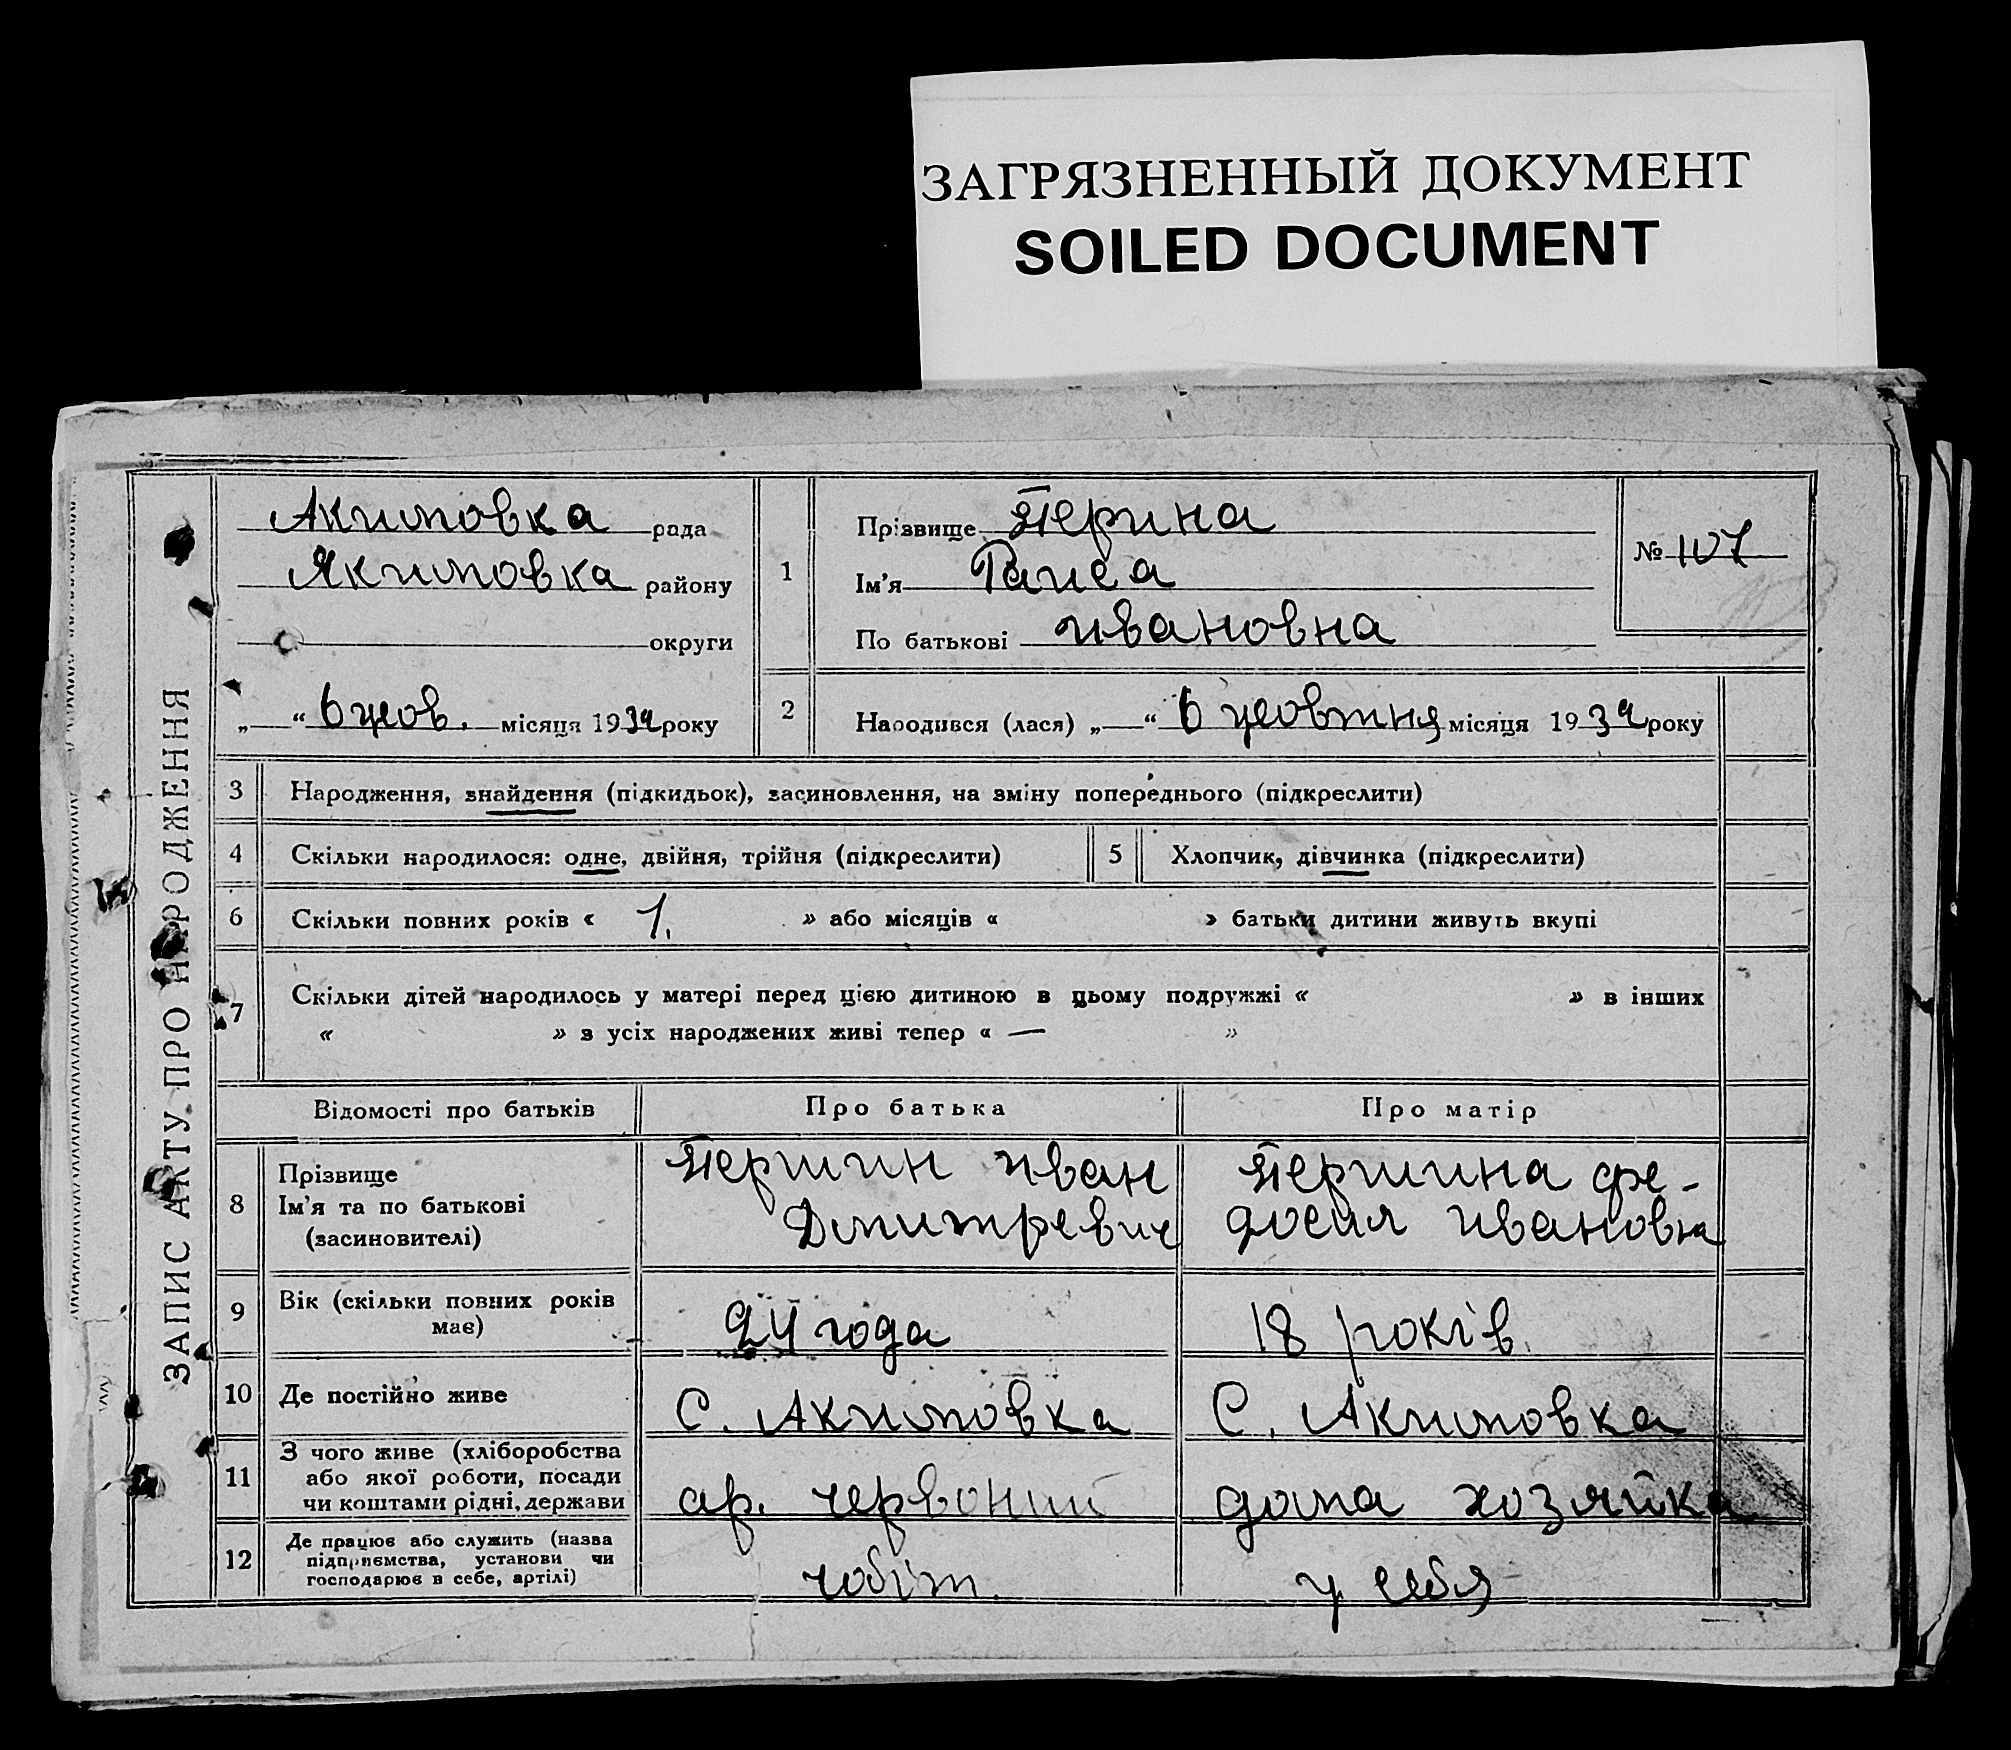 ЗАГРЯЗНЕННЫЙ ДОКУМЕНТ
SOILED DOCUMENT
ЗАПИС АКТУ ПРО НАРОДЖЕННЯ
Акимовка рада
Якимовка району
округи
„ “ 6 жов. місяця 1934 року
1
Прізвище Перина
Ім'я Раиса
По батькові ивановна
№ 107
2
Народився (лася) „ “ 6 жовтня місяця 1934 року
3 Народження, знайдення (підкидьок), засиновлення, на зміну попереднього (підкреслити)
4 Скільки народилося: одне, двійня, трійня (підкреслити) 5 Хлопчик, дівчинка (підкреслити)
6 Скільки повних років « 1. » або місяців « » батьки дитини живуть вкупі
7 Скільки дітей народилось у матері перед цією дитиною в цьому подружжі « » в інших
« » з усіх народжених живі тепер « — »
Відомості про батьків Про батька Про матір
8 Прізвище
Ім'я та по батькові
(засиновителі)
Першин иван
Дмитревич
Першина фе-
досия ивановна
9 Вік (скільки повних років
має)
24 года 18 років
10 Де постійно живе С. Акимовка С. Акимовка
11 З чого живе (хліборобства
або якої роботи, посади
чи коштами рідні, держави
ар. червоний дома хозяйка
12 Де працює або служить (назва
підприємства, установи чи
господарює в себе, артілі)
чобіт. у себя